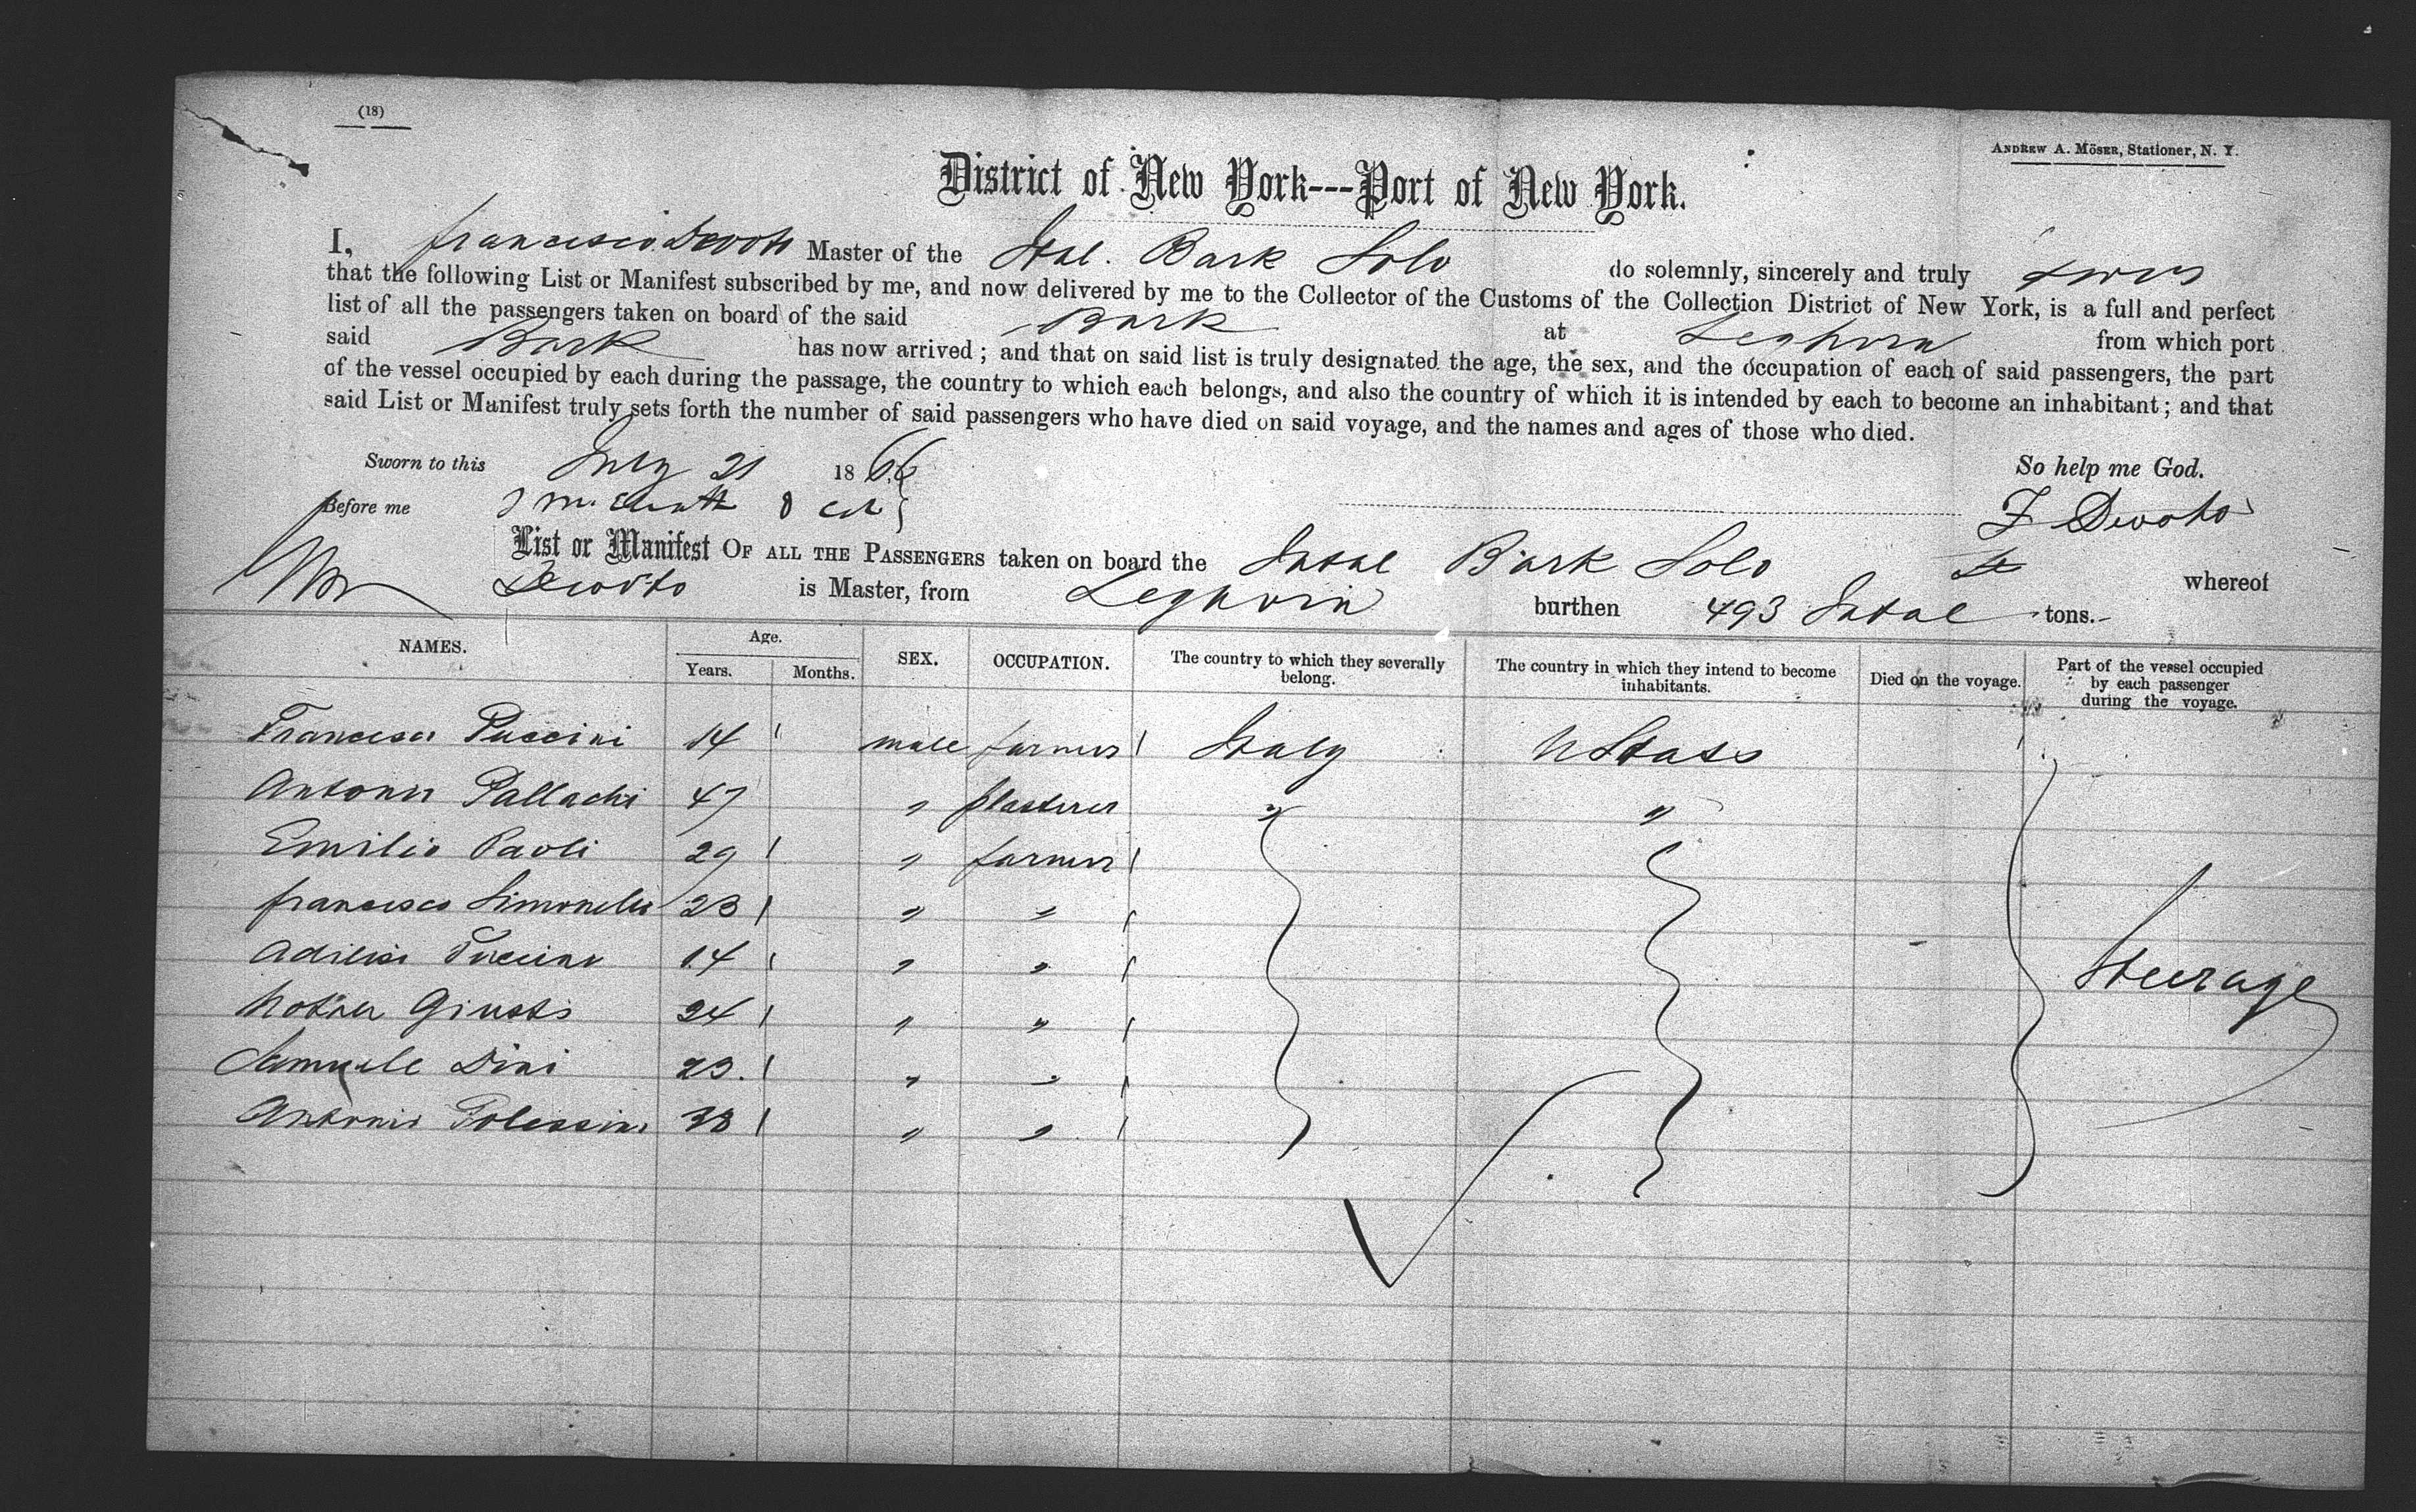 (18)
ANDREW A. MÖSER, Stationer, N. Y.
District of New York---Port of New York.
I, francesco Devoto Master of the Ital. Bark Solo do solemnly, sincerely and truly
that the following List or Manifest subscribed by me, and now delivered by me to the Collector of the Customs of the Collection District of New York, is a full and perfect
list of all the passengers taken on board of the said Bark at Leghorn from which port
said Bark has now arrived; and that on said list is truly designated the age, the sex, and the occupation of each of said passengers, the part
of the vessel occupied by each during the passage, the country to which each belongs, and also the country of which it is intended by each to become an inhabitant; and that
said List or Manifest truly sets forth the number of said passengers who have died on said voyage, and the names and ages of those who died.
Sworn to this July 21 1866 So help me God.
Before me F Devoto
List or Manifest OF ALL THE PASSENGERS taken on board the Ital Bark Solo whereof
Devoto is Master, from Leghorn burthen 493 Ital tons.
NAMES. Age. Years. Months. SEX. OCCUPATION. The country to which they severally belong. The country in which they intend to become inhabitants. Died on the voyage. Part of the vessel occupied by each passenger during the voyage.
Francesco Puccini 14 male farmer Italy U States
Antonio Pallachi 47 " plasterer " "
Emilio Paoli 29 " farmer
francesco Simonelli 23 " "
Puccini 14 " "
Giusti 24 " " Steerage
Samuele Dini 23. " "
Antonio 38 " "